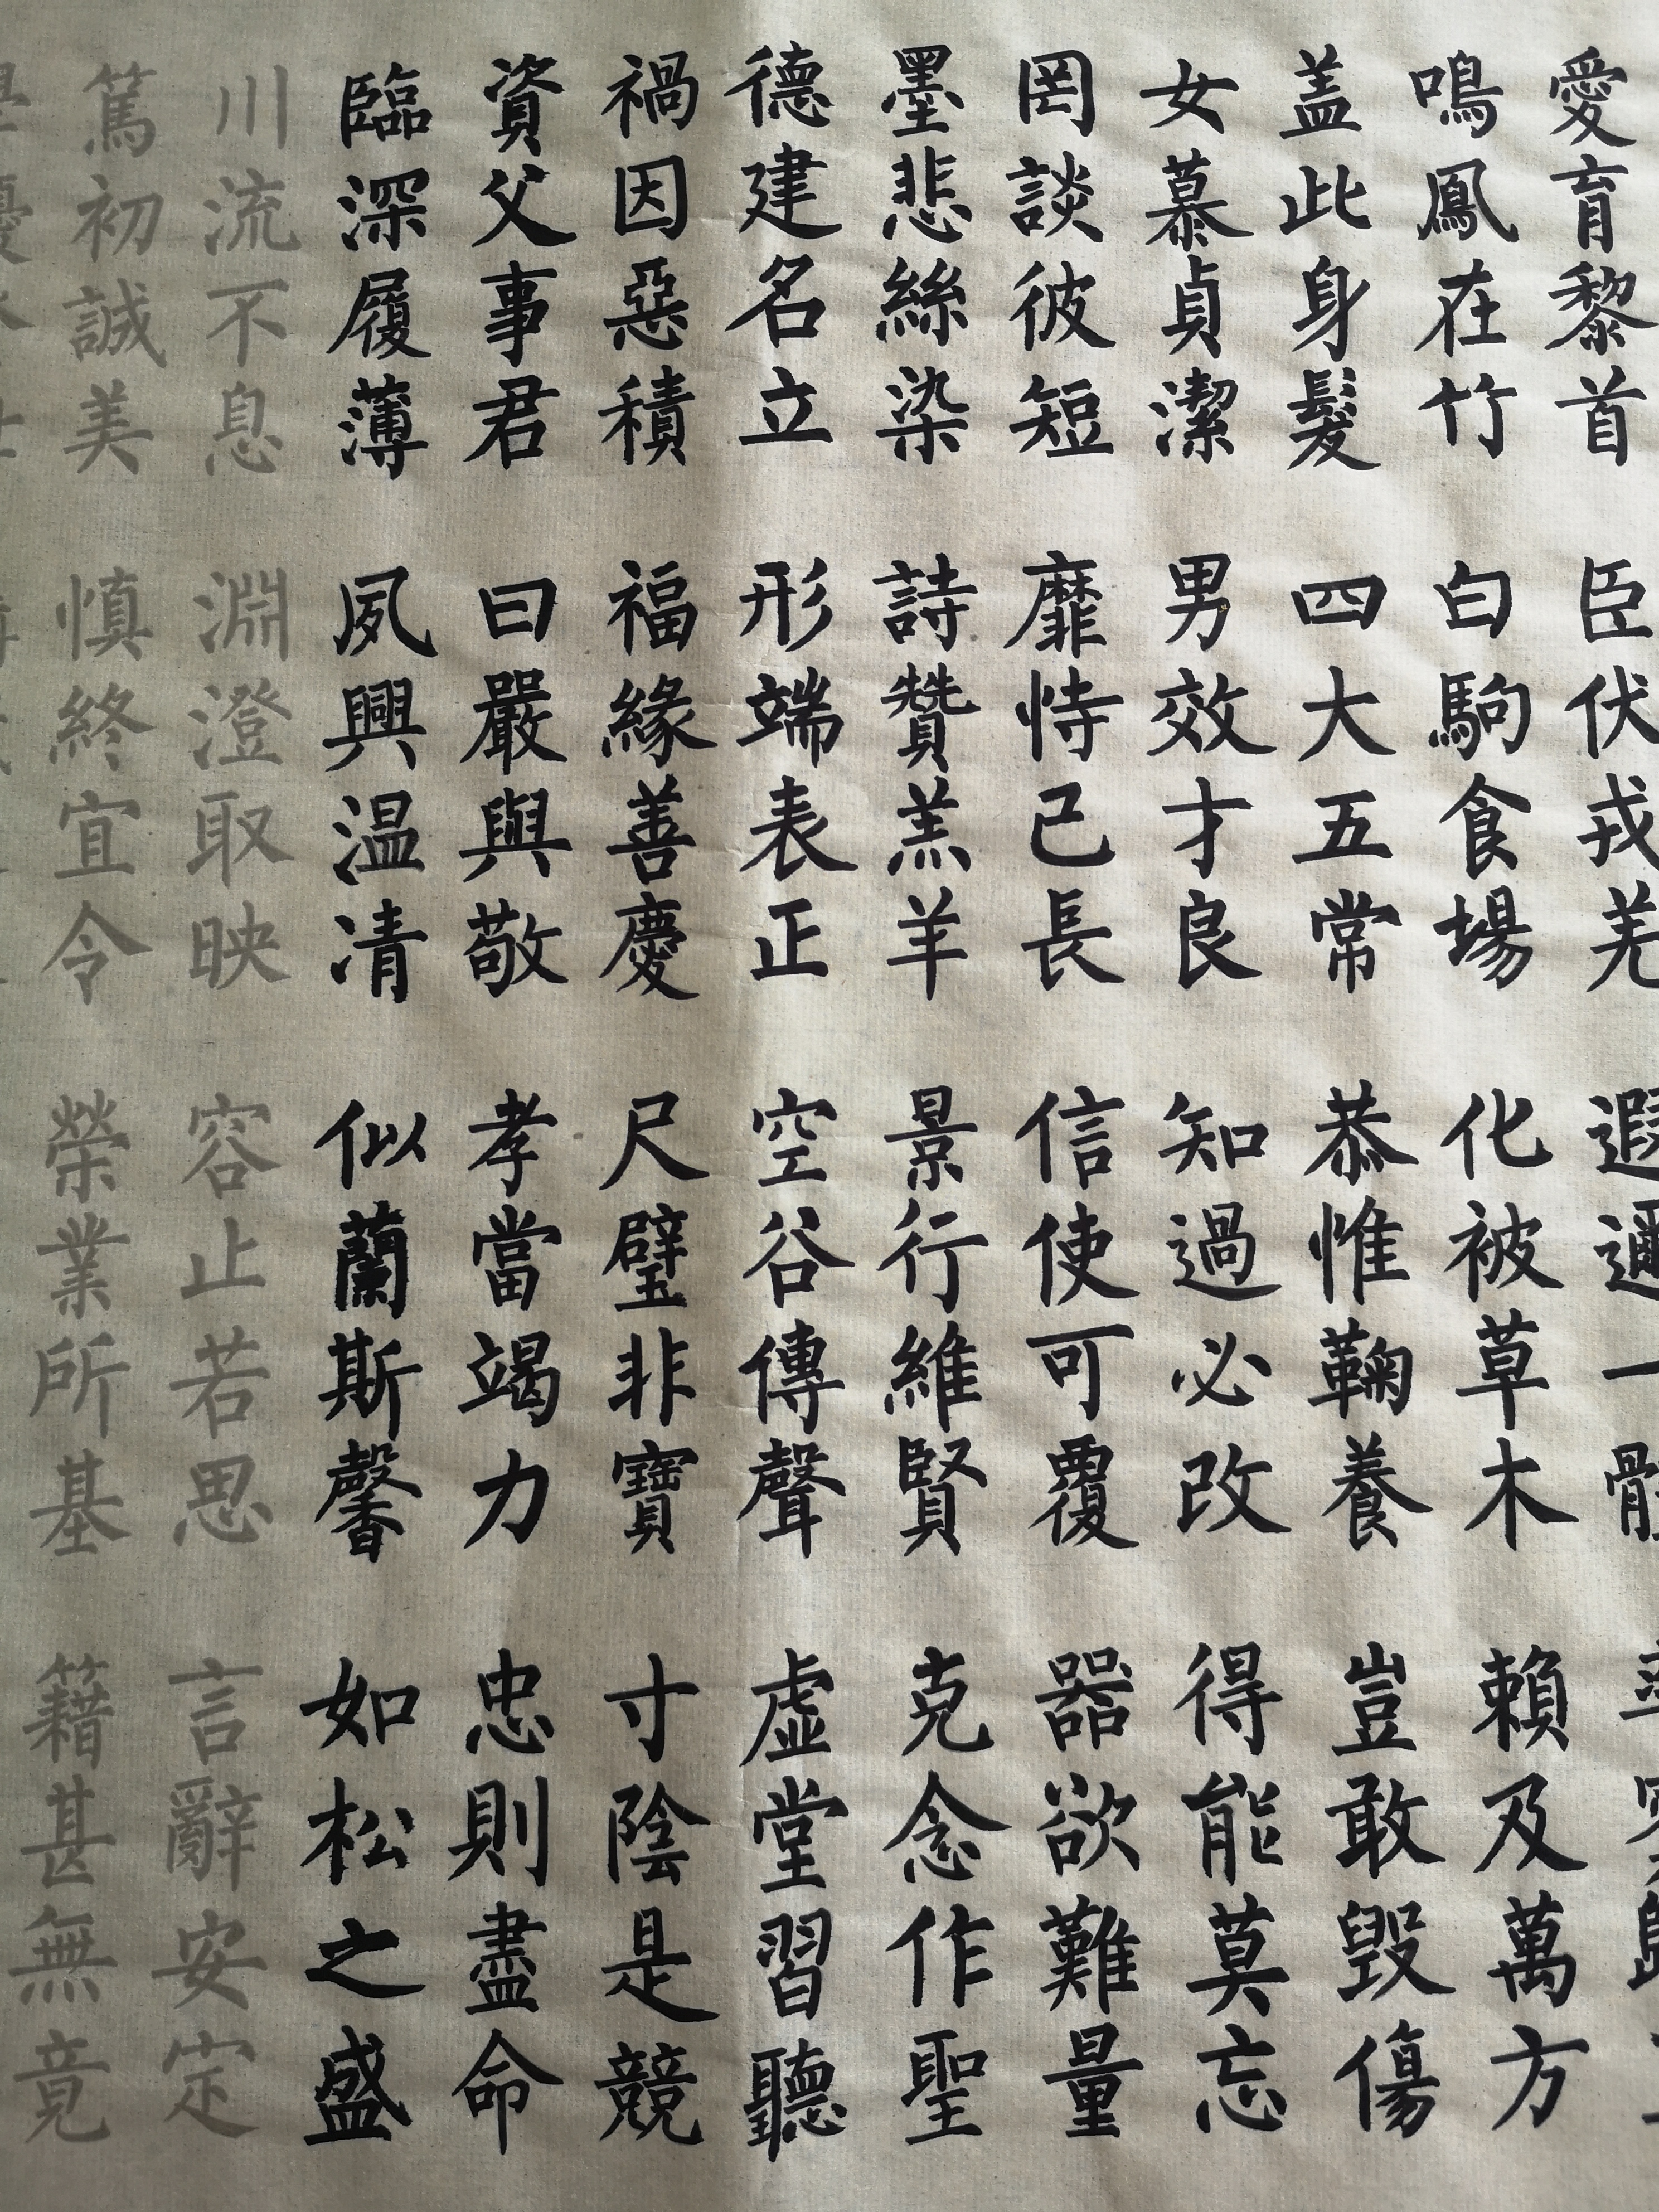 愛育黎首 臣伏戎羌 遐邇一體
鳴鳳在竹 白駒食場 化被草木 賴及萬方
盖此身髮 四大五常 恭惟鞠養 豈敢毀傷
女慕貞潔 男效才良 知過必改 得能莫忘
罔談彼短 靡恃己長 信使可覆 器欲難量
墨悲絲染 詩贊羔羊 景行維賢 克念作聖
德建名立 形端表正 空谷傳聲 虛堂習聽
禍因惡積 福緣善慶 尺璧非寶 寸陰是競
資父事君 曰嚴與敬 孝當竭力 忠則盡命
臨深履薄 夙興温凊 似蘭斯馨 如松之盛
川流不息 淵澄取映 容止若思 言辭安定
篤初誠美 慎終宜令 榮業所基 籍甚無竟